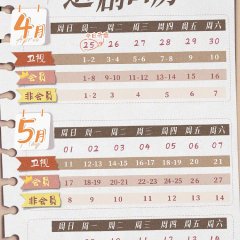 追剧日历
4月
周日 周一 周二 周三 周四 周五 周六
25 26 27 28 29 30
卫视 1-2 3-4 5-6 7-8 9 10
会员 1-8 9-10 11-12 13-14 15-16
非会员 1-2 3 4 5 6 7
5月
周日 周一 周二 周三 周四 周五 周六
01 02 03 04 05 06 07
卫视 11 12-13 14-15 16-17 18-19 20 21
会员 17 18-19 20-21 22-23 24-25 26 27
非会员 8 9 10 11 12 13 14
周日 周一 周二 周三 周四 周五 周六